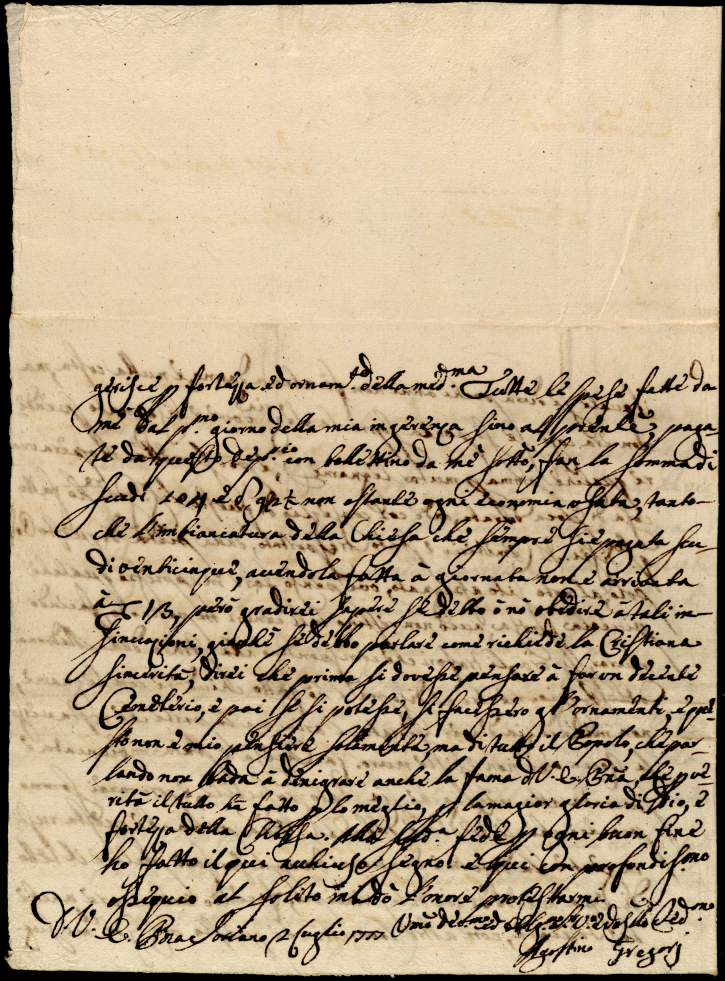 gerisce p fortezza ed ornam.to della med.ma Tutte le spese fatte da
mè dal p.mo giorno della mia ingerenza sino al presente, paga-
te da questo dep.rio con bollettino da mè sotto, fan la somma di
scudi 104 e non ostante ogni economia usata, tanto
che l'imbiancatura della Chiesa che sempre si è pagata scu-
di venticinque, avendola fatta à giornata non è arrivata
à 13, però gradirei sapere se debbo ò nò obedire à tali in-
sinuazioni, giachè se debbo parlare come richiede la Cristiana
sincerità, direi che prima si dovesse pensare à far un decente
Cemeterio, e poi se si potesse, si facessero gl'ornamenti, e que-
sto non è mio pensiere solamente, ma di tutto il Popolo, che par-
lando non bada à denigrare anche la fama di V. E. R̃ma che
rità il tutto hà fatto p lo meglio, p la magior gloria di Dio, e
fortezza della Chiesa. fede p ogni buon fine
ho fatto il qui acchiuso segno. e qui con profondiss.mo
ossequio al solito mi dò l'onore protestarmi
D.V. E. R̃ma Soriano 2 Luglio 1777 Umo
Agostino Gregorj